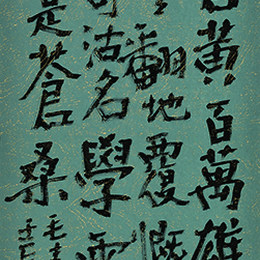 黃百萬雄
翻地覆慨
可沽名學霸
是蒼桑
毛主